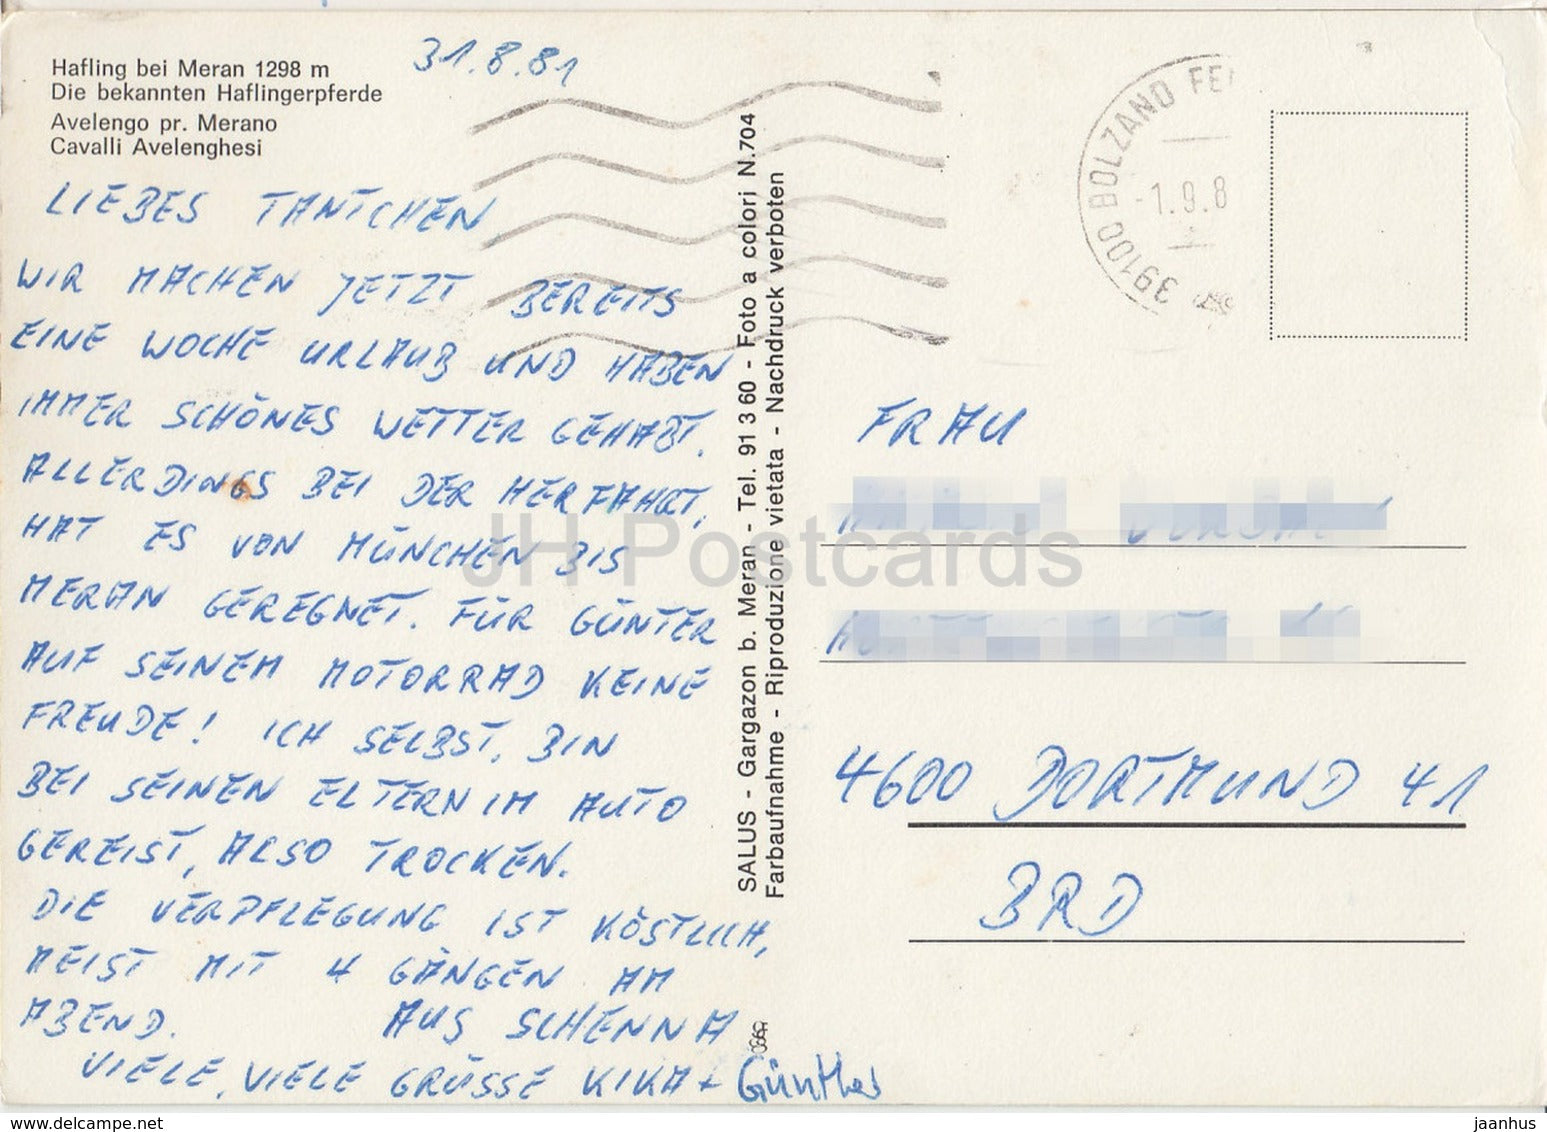 Hafling bei Meran 1298 m
Die bekannten Haflingerpferde
Avelengo pr. Merano
Cavalli Avelenghesi
31.8.81
LIEBES TANTCHEN
WIR MACHEN JETZT BEREITS
EINE WOCHE URLAUB UND HABEN
IMMER SCHÖNES WETTER GEHABT.
ALLERDINGS BEI DER HERFAHRT,
HAT ES VON MÜNCHEN BIS
MERAN GEREGNET. FÜR GÜNTER
AUF SEINEM MOTORRAD KEINE
FREUDE! ICH SELBST, BIN
BEI SEINEN ELTERN IM AUTO
GEREIST, ALSO TROCKEN.
DIE VERPFLEGUNG IST KÖSTLICH,
MEIST MIT 4 GÄNGEN AM
ABEND. AUS SCHENNA
VIELE, VIELE GRÜSSE KIKA + Günther
SALUS - Gargazon b. Meran - Tel. 91 3 60 - Foto a colori N.704
Farbaufnahme - Riproduzione vietata - Nachdruck verboten
39100 BOLZANO FE
-1.9.8
FRAU
4600 DORTMUND 41
BRD
JH Postcards
www.delcampe.net
jaanhus